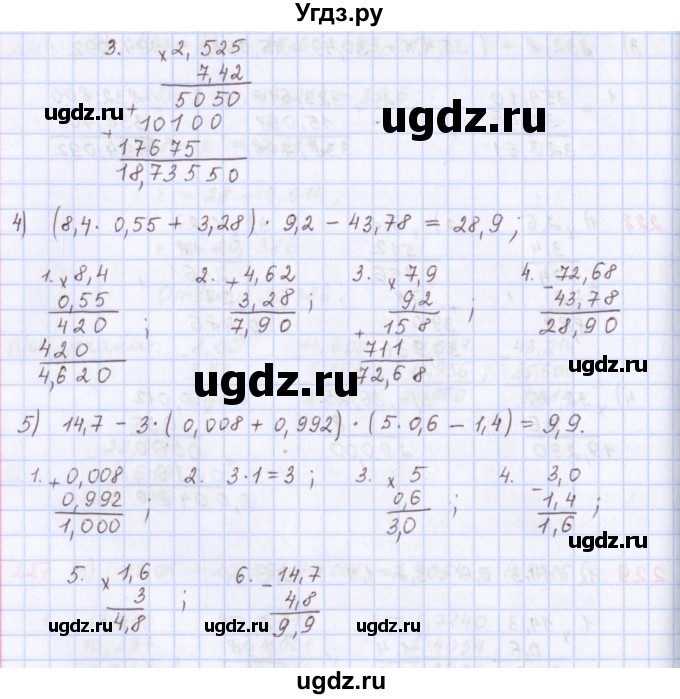 Угдз.ру
3. × 2,525
7,42
5050
+ 10100
+ 17675
18,73550
4) (8,4 · 0,55 + 3,28) · 9,2 − 43,78 = 28,9;
1. × 8,4
0,55
420
420
4,620 ;
2. + 4,62
3,28
7,90 ;
3. × 7,9
9,2
+ 158
711
72,68 ;
4. − 72,68
43,78
28,90
5) 14,7 − 3 · (0,008 + 0,992) · (5 · 0,6 − 1,4) = 9,9.
1. + 0,008
0,992
1,000 ;
2. 3·1=3 ;
3. × 5
0,6
3,0 ;
4. − 3,0
1,4
1,6 ;
5. × 1,6
3
4,8 ;
6. − 14,7
4,8
9,9
ugdz.ru
ugdz.ru
ugdz.ru
ugdz.ru
ugdz.ru
ugdz.ru
ugdz.ru
ugdz.ru
ugdz.ru
ugdz.ru
ugdz.ru
ugdz.ru
ugdz.ru
ugdz.ru
Угдз.ру